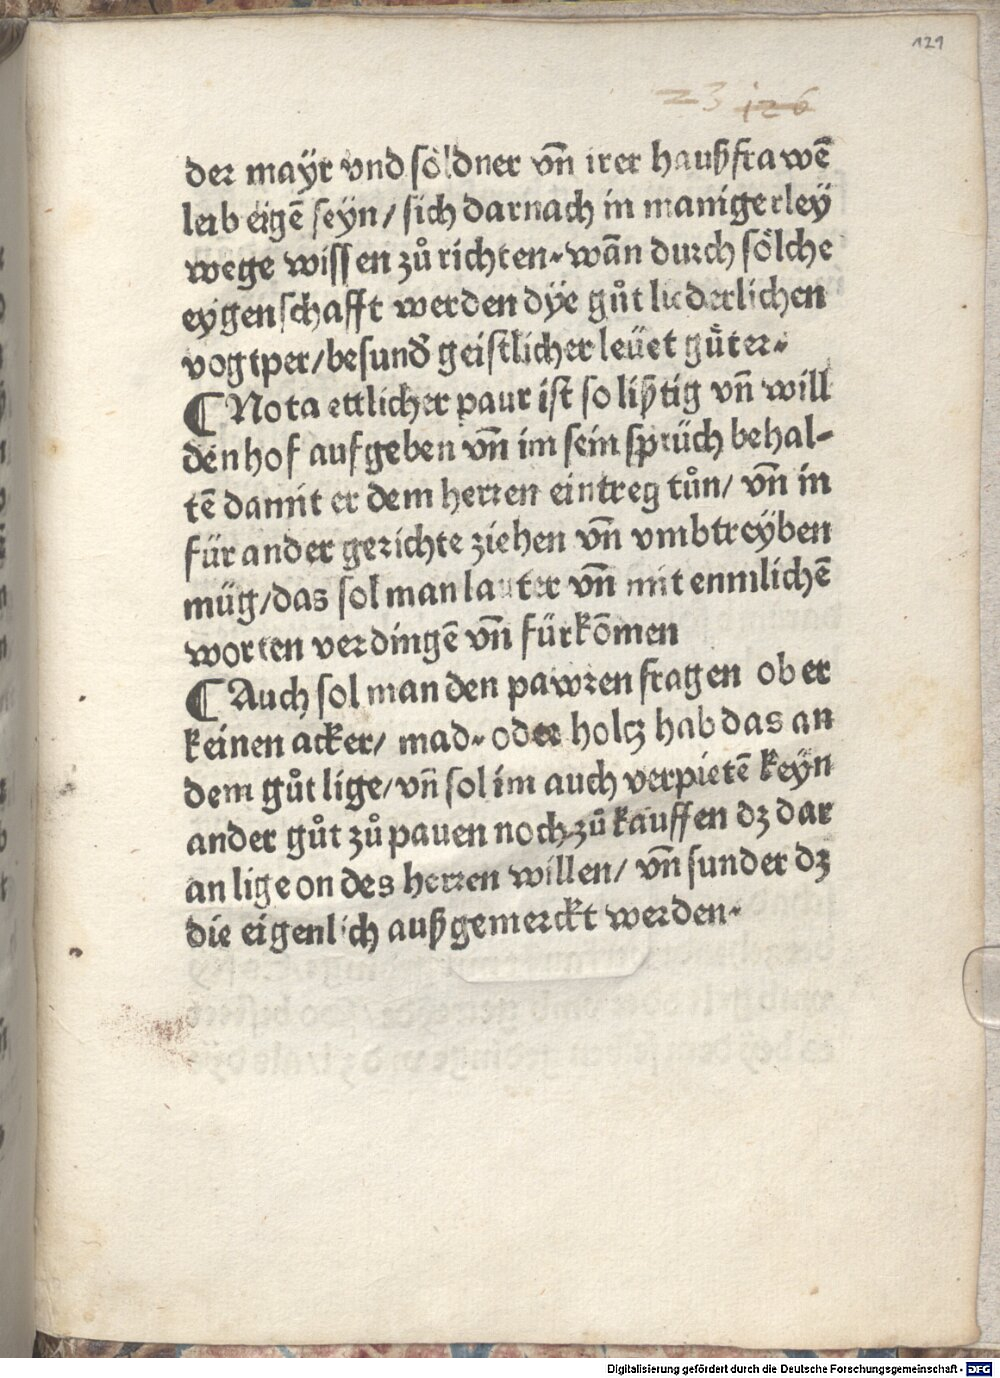 129
23 126
der mayr vnd söldner vn̄ irer haußfrawē
leib eigē seÿn/ sich darnach in manigerleÿ
wege wissen zů richten. wān durch sölche
eygenschafft werden dÿe gůt liederlichen
vogtper/besund̉ geistlicher leüet gůter.
¶ Nota ettlicher paur ist so lißtig vn̄ will
den hof aufgeben vn̄ im sein sprüch behal-
tē damit er dem herren eintreg tůn/ vn̄ in
für ander gerichte ziehen vn̄ vmbtreÿben
müg/das sol man lauter vn̄ mit enmlichē
worten verdingē vn̄ fürkōmen
¶ Auch sol man den pawren fragen ob er
keinen acker/ mad. oder holtz hab das an
dem gůt lige/vn̄ sol im auch verpietē keÿn
ander gůt zů pauen noch zů kauffen dz dar
an lige on des herren willen/ vn̄ sunder dz
die eigenlich außgemerckt werden.
Digitalisierung gefördert durch die Deutsche Forschungsgemeinschaft - DFG